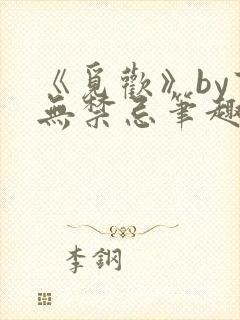 《覓歡》by
無禁忌筆趣
李鋼